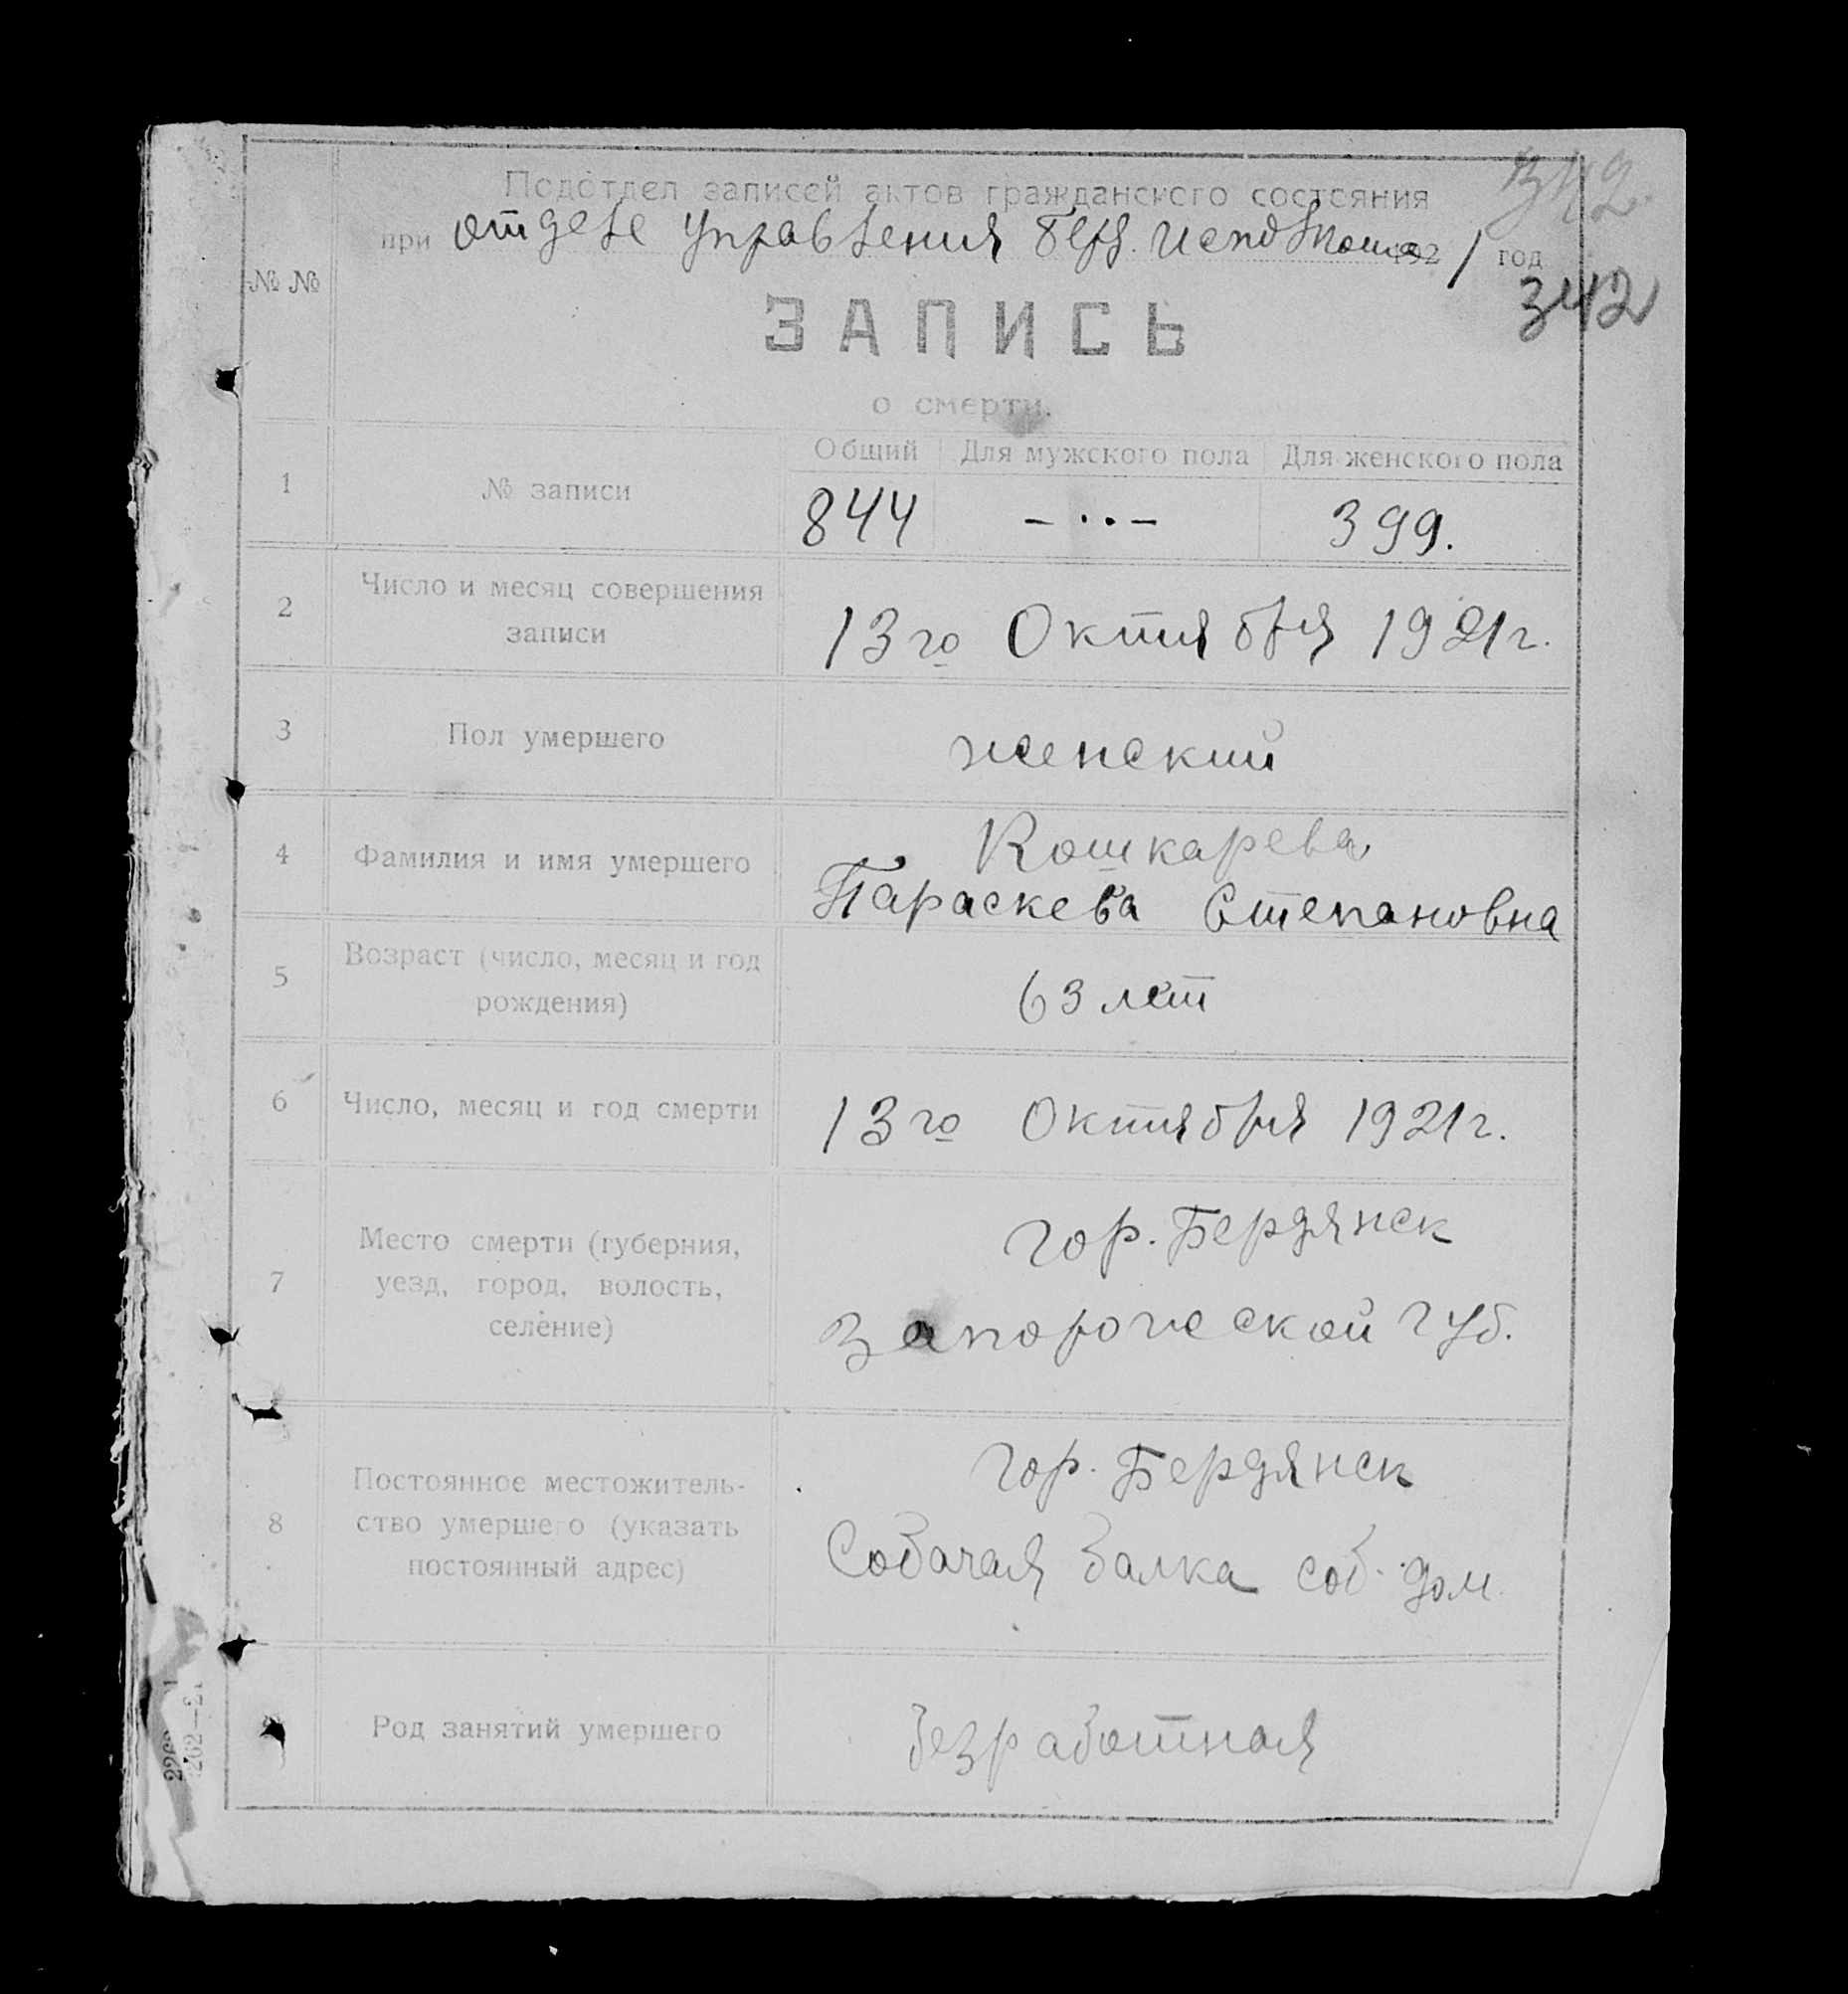 Подотдел записей актов гражданского состояния
342
при отделе управления Берд. исполкома 1921 год
342
№ №
ЗАПИСЬ
о смерти.
Общий Для мужского пола Для женского пола
1 № записи 844 – ·· – 399.
2 Число и месяц совершения
записи
13го Октября 1921г.
3 Пол умершего женский
4 Фамилия и имя умершего Кошкарева
Параскева Степановна
5 Возраст (число, месяц и год
рождения)
63 лет
6 Число, месяц и год смерти 13го Октября 1921г.
7 Место смерти (губерния,
уезд, город, волость,
селение)
гор. Бердянск
Запорожской губ.
8 Постоянное местожитель-
ство умершего (указать
постоянный адрес)
гор. Бердянск
Собачая балка соб. дом
Род занятий умершего безработная
262—21